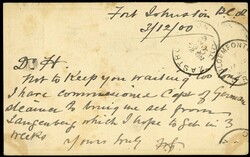 Fort Johnston B.C.A
3/12/00
D. H.
Not to keep you waiting too long
I have commissioned Capt of German
steamer to bring me set from
Langenburg which I hope to get in 3
weeks
Yours truly